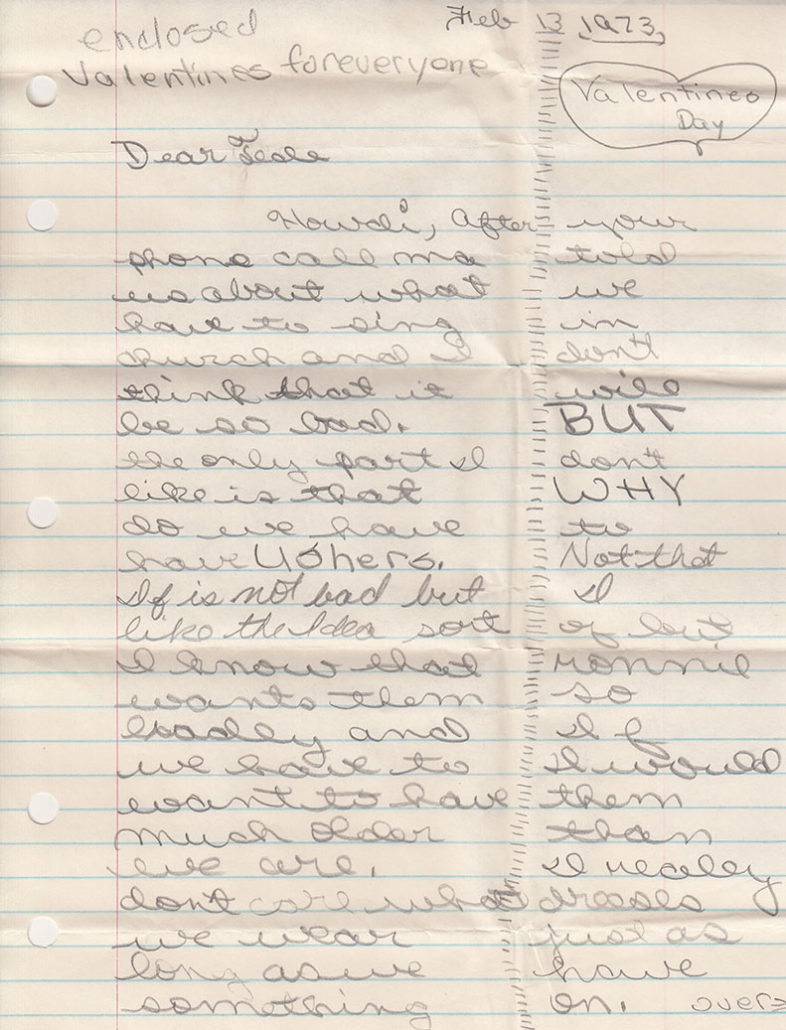 enclosed
Feb 13 1973,
Valentines foreveryone
Valentines
Day
Dear
Howdi, After your
phone call ma told
us about what we
have to sing in
church and I don't
think that it will
be so bad. BUT
the only part I don't
like is that WHY
do we have to
have Ushers. Not that
If is not bad but I
like the Idea sort of but
I know that ronnie
wants them so
badley and If
we have to I would
want to have them
much older than
we are. I realey
don't care what dresses
we wear just as
long as we have
something on. over